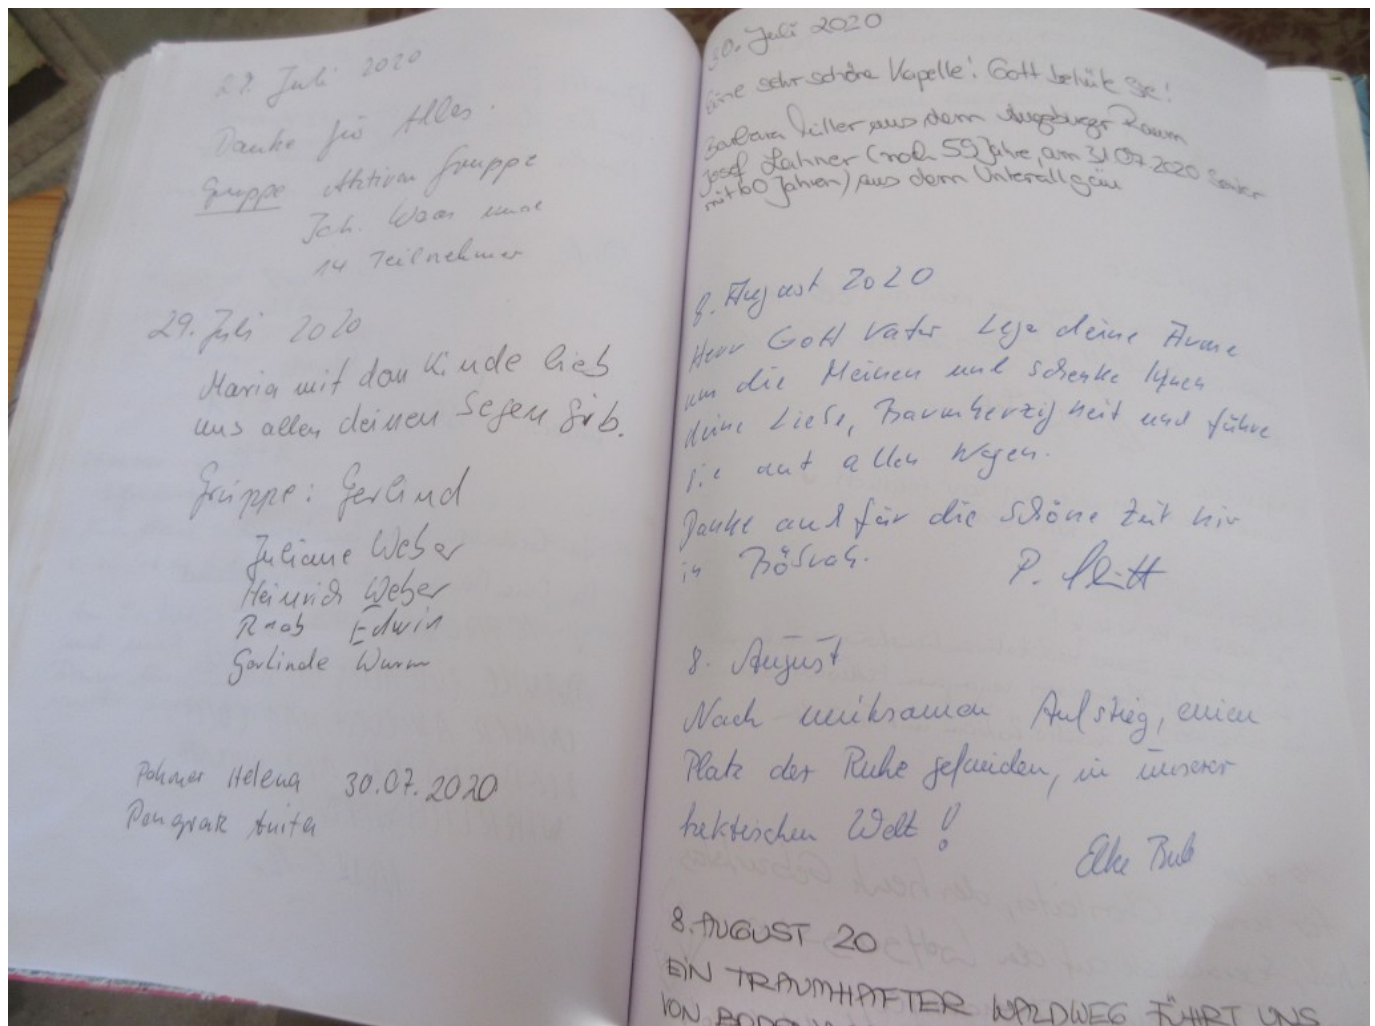 Juli 2020
Danke für Alles.
Gruppe Aktiven Gruppe
Joh. Waas
14 Teilnehmer
29. Juli 2020
Maria mit dem Kinde lieb
uns allen deinen Segen gib.
Gruppe: Gerlind
Juliane Weber
Heinrich Weber
Raab Edwin
Gerlinde Wurm
Helena 30.07.2020
Pongratz Anita
30. Juli 2020
Eine sehr schöne Kapelle! Gott behüte Sie!
Barbara aus dem Augsburger Raum
Josef Lahner (noch 59 Jahre, am 31.07.2020
mit 60 Jahren) aus dem Unterallgäu
8. August 2020
Herr Gott Vater Lege deine Arme
um die Meinen und schenke Ihnen
deine Liebe, Barmherzigkeit und führe
sie auf allen Wegen.
Danke auch für die schöne Zeit hir
in
P.
8. August
Nach mühsamen Aufstieg, einen
Platz der Ruhe gefunden, in unserer
hektischen Welt!
Elke
8. AUGUST 20
EIN TRAUMHAFTER WALDWEG FÜHRT UNS
VON